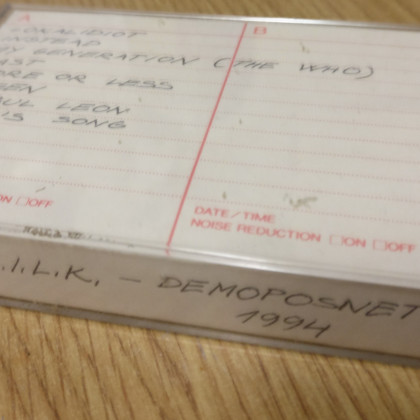 A
LOKALIDIOT
INSTEAD
MY GENERATION (THE WHO)
AST
ORE OR LESS
EN
AUL LEON
'S SONG
ON □OFF
B
DATE/TIME
NOISE REDUCTION □ON □OFF
.I.L.K. – DEMOPOSNET
1994